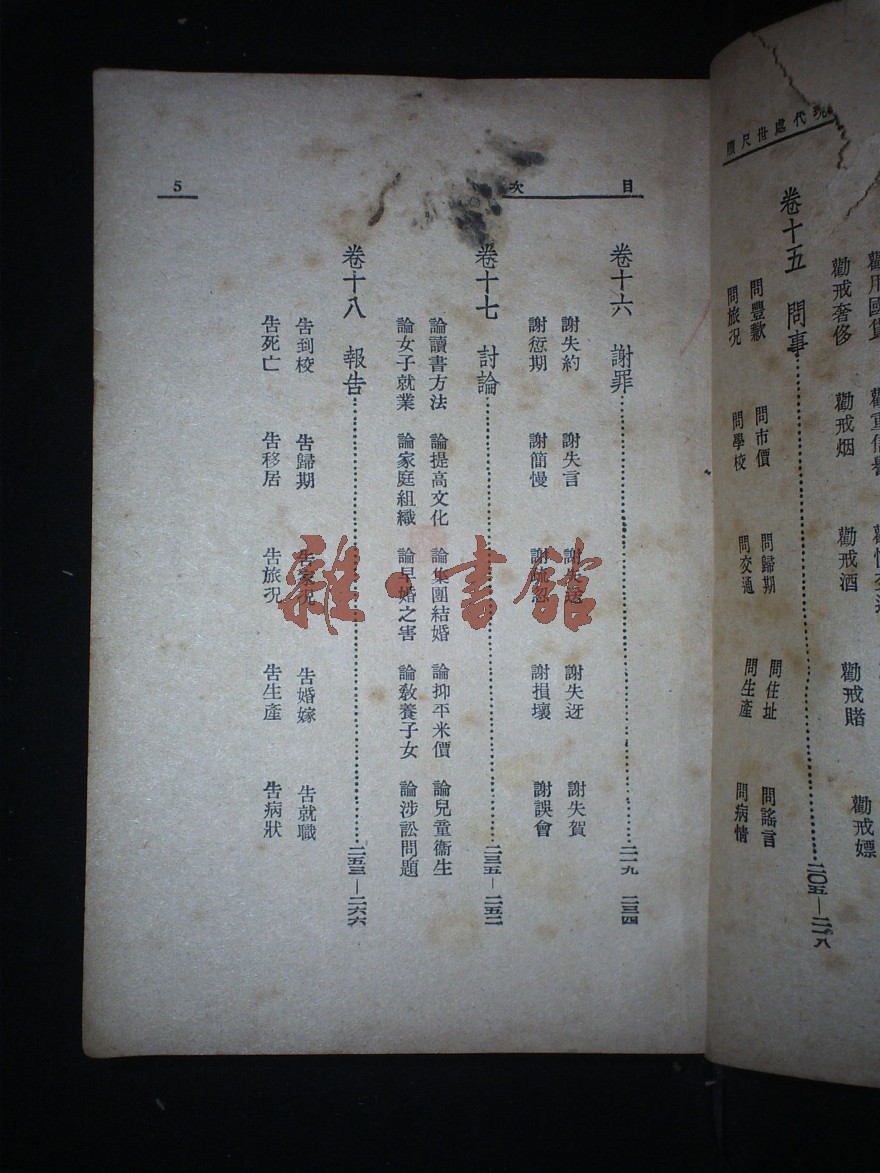 現代處世尺牘
勸用國貨
勸戒奢侈 勸戒烟 勸戒酒 勸戒賭 勸戒嫖
卷十五 問事 二〇五—二一八
問豐歉 問市價 問歸期 問住址 問謠言
問旅況 問學校 問交通 問生產 問病情
目 次 5
卷十六 謝罪 二一九 二三四
謝失約 謝失言 謝失送 謝失迓 謝失賀
謝愆期 謝簡慢 謝疏忽 謝損壞 謝誤會
卷十七 討論 二三五—二五二
論讀書方法 論提高文化 論集團結婚 論抑平米價 論兒童衞生
論女子就業 論家庭組織 論早婚之害 論敎養子女 論涉訟問題
卷十八 報告 二五三—二六六
告到校 告歸期 告家況 告婚嫁 告就職
告死亡 告移居 告旅況 告生產 告病狀
雜·書館